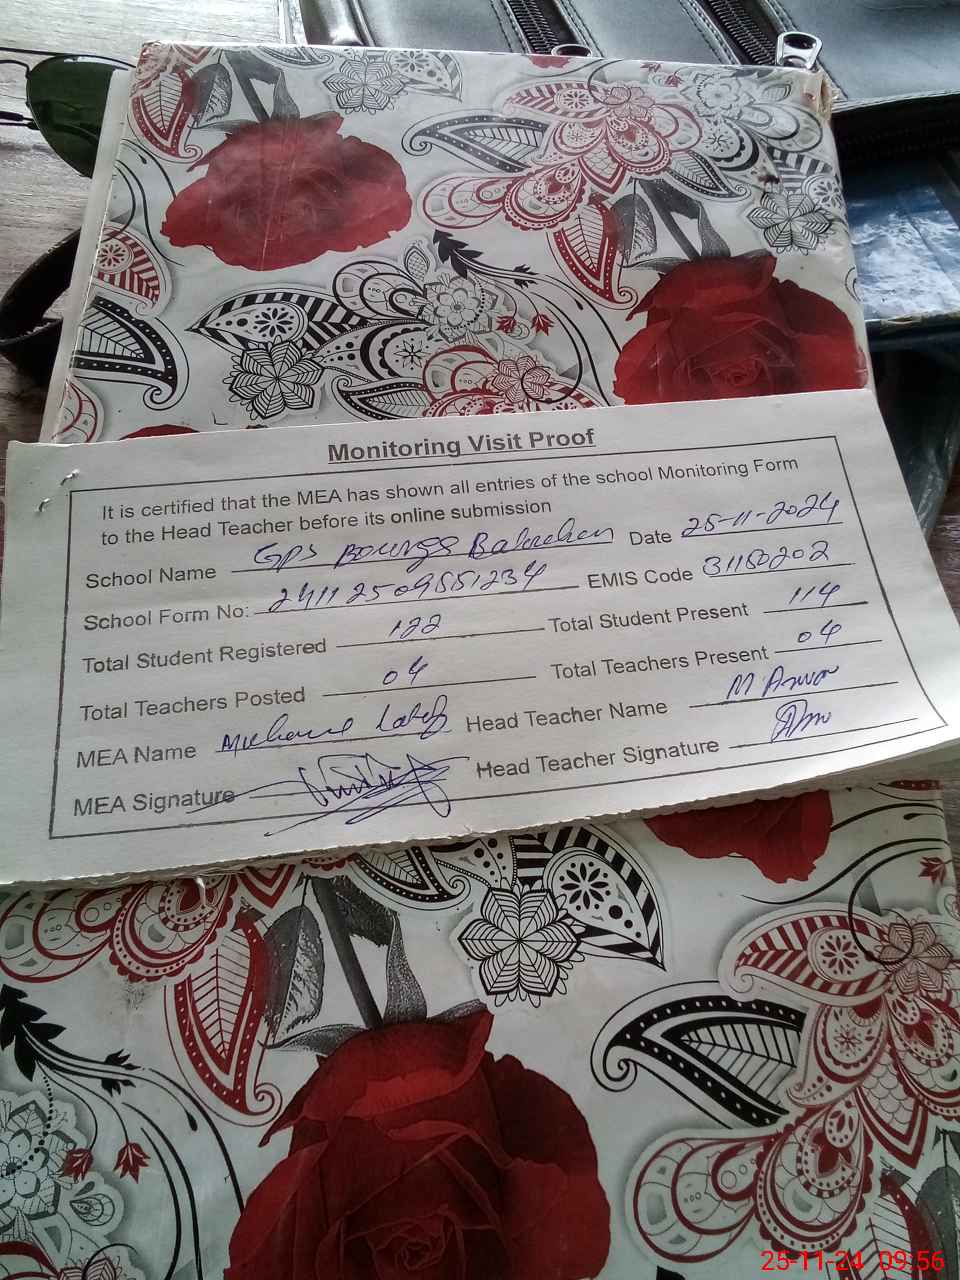 Monitoring Visit Proof
It is certified that the MEA has shown all entries of the school Monitoring Form
to the Head Teacher before its online submission
School Name GPS Date 25-11-2024
School Form No: 241125095551234 EMIS Code 31150202
Total Student Registered 122 Total Student Present 114
Total Teachers Posted 04 Total Teachers Present 04
MEA Name Head Teacher Name M Anwar
MEA Signature Head Teacher Signature
25-11-24 09:56